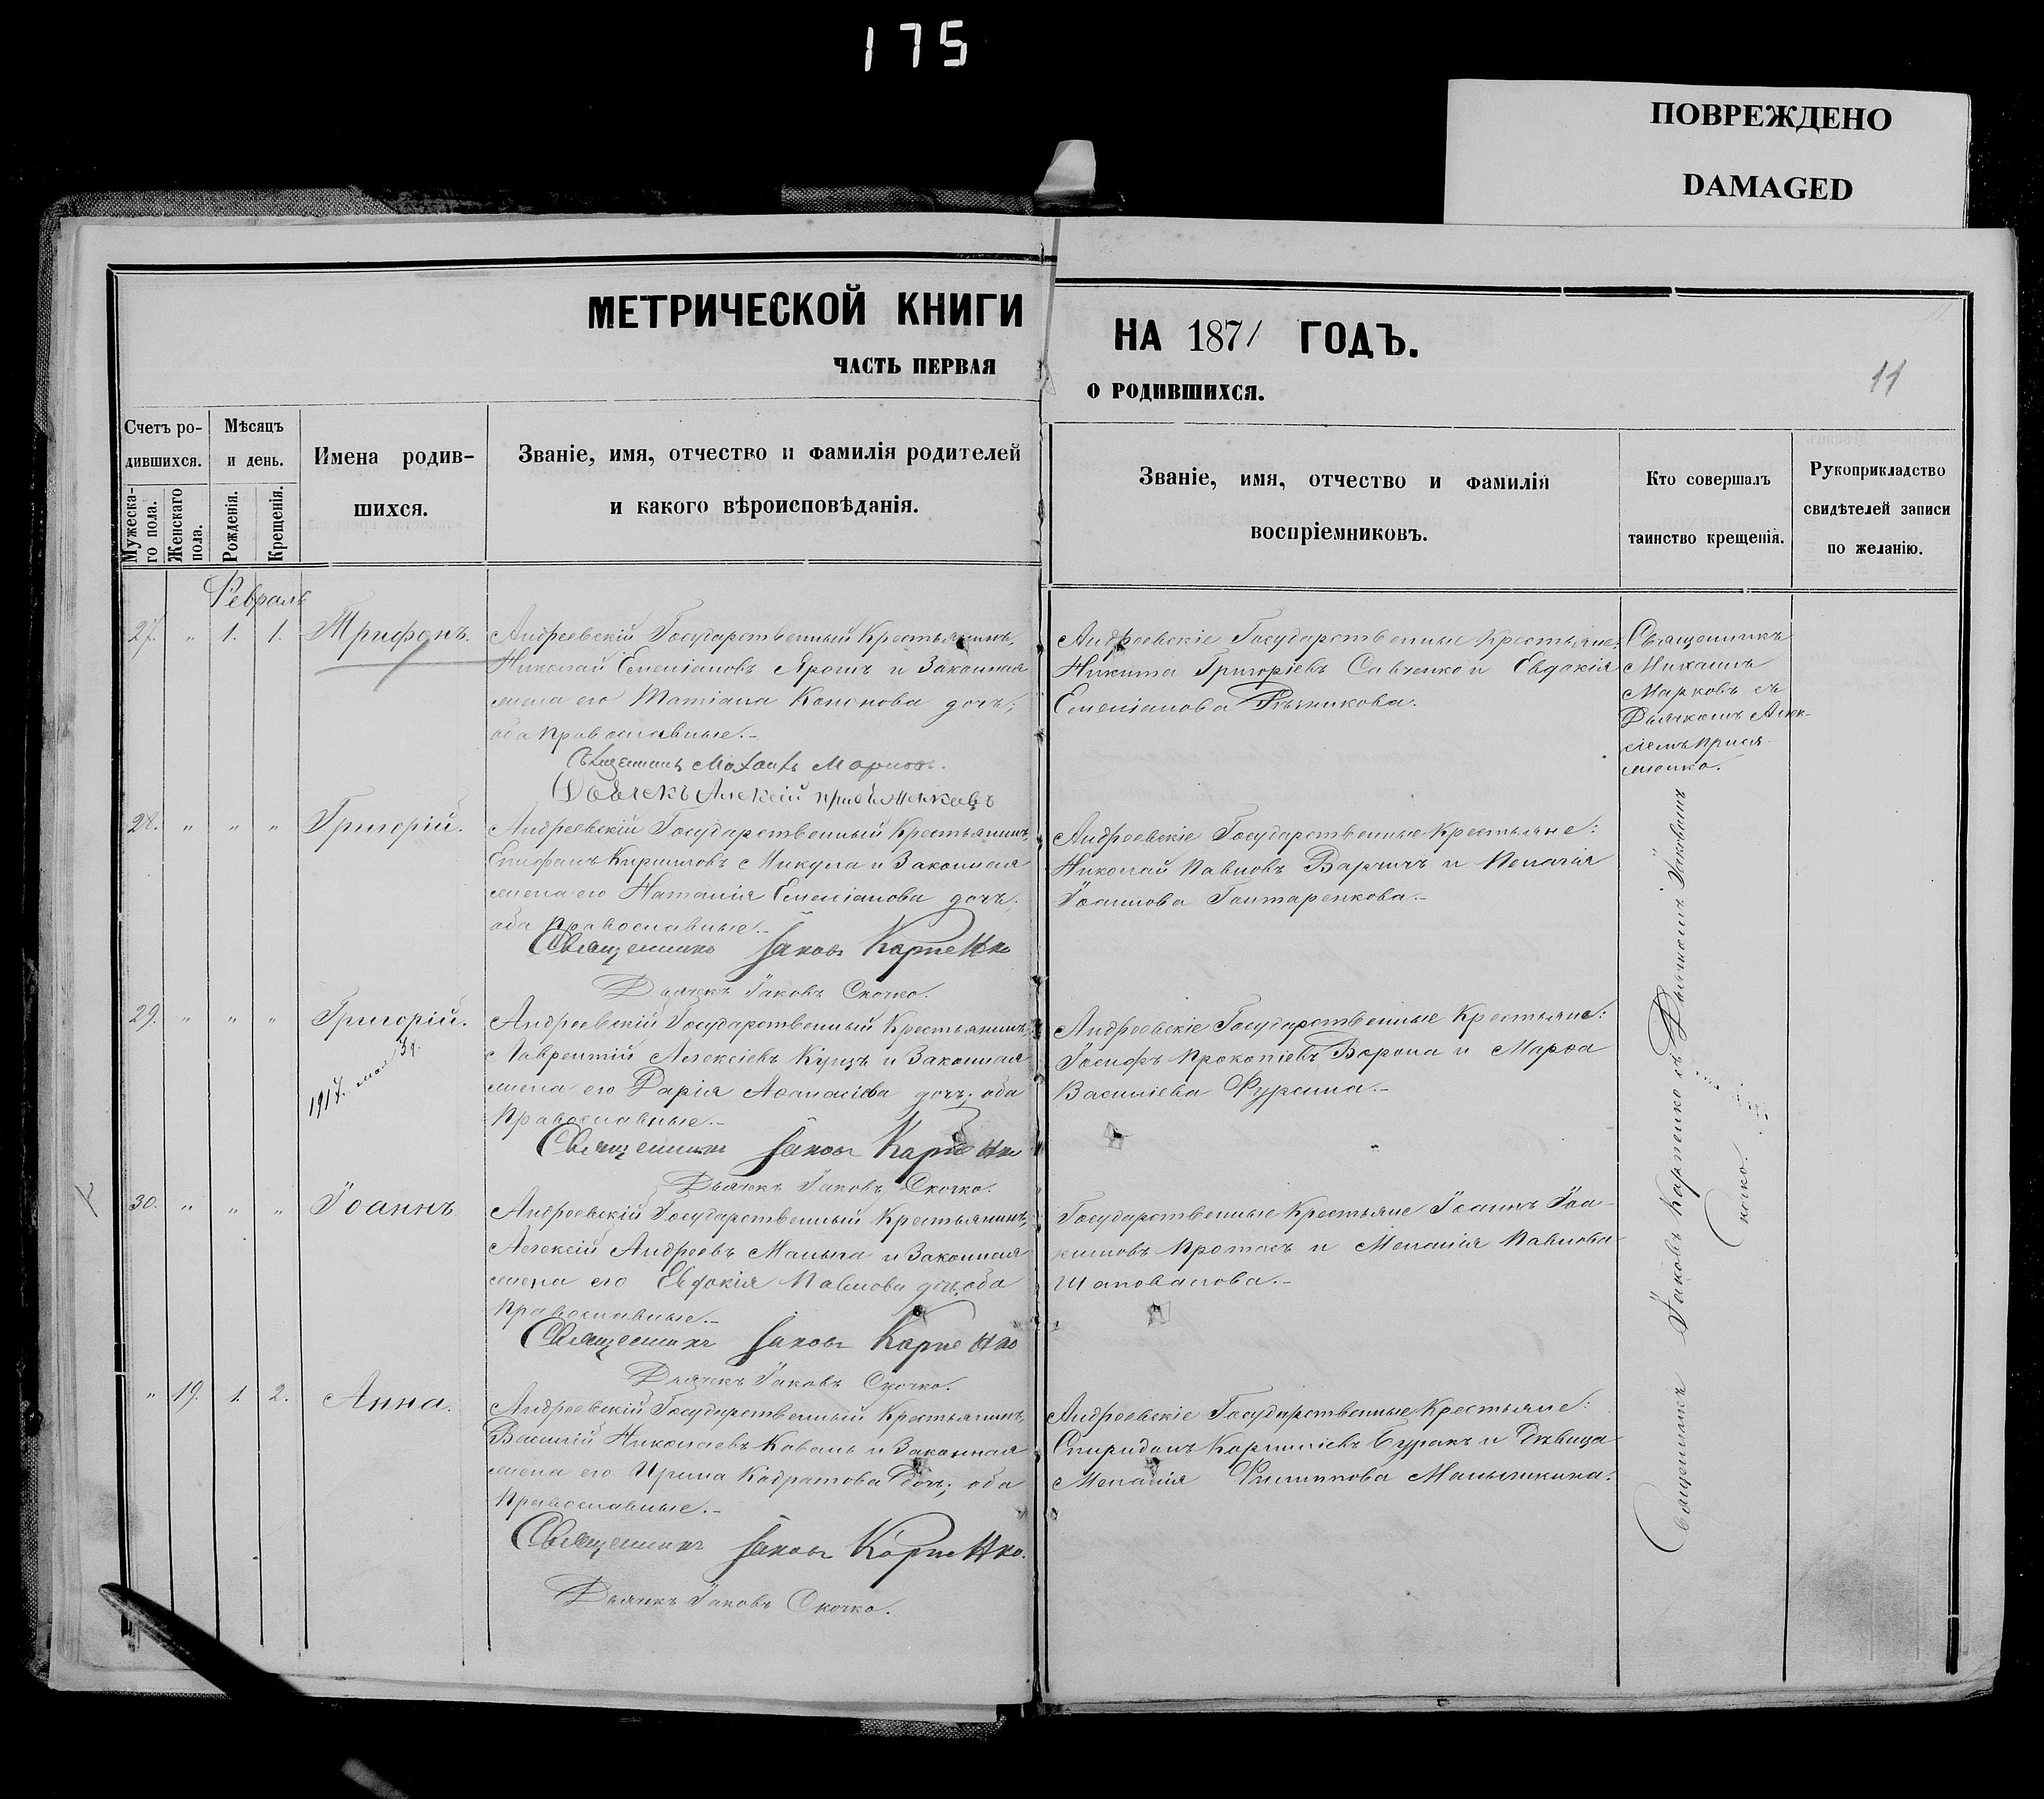 175
ПОВРЕЖДЕНО
DAMAGED
МЕТРИЧЕСКОЙ КНИГИ
НА 1871 ГОДЪ.
ЧАСТЬ ПЕРВАЯ
О РОДИВШИХСЯ.
11
Счетъ ро-
дившихся.
Мужеска-
го пола.
Женскаго
пола.
Мѣсяцъ
и день.
Рожденія.
Крещенія.
Имена родив-
шихся.
Званіе, имя, отчество и фамилія родителей
и какого вѣроисповѣданія.
Званіе, имя, отчество и фамилія
воспріемниковъ.
Кто совершалъ
таинство крещенія.
Рукоприкладство
свидѣтелей записи
по желанію.
Февраль
27. " 1. 1. Трифонъ.
Андреевскій Государственный Крестьянинъ,
Николай Емеліановъ Ярошъ и Законная
жена его Татіана Кононова дочь;
оба православные.-
Священникъ Михаилъ Марковъ.
Дьячекъ Алексій
Андреевскіе Государственные Крестьяне:
Никита Григоріевъ Савченко и Евдокія
Емеліанова Рѣзникова.
Священникъ
Михаилъ
Марковъ съ
Дьячкомъ Алек-
сіемъ
28. " " " Григорій.
Андреевскій Государственный Крестьянинъ,
Епифанъ Кирилловъ Микула и Законная
жена его Наталія Емеліанова дочь;
оба православные.-
Священникъ Іаковъ Карпенко
Дьячекъ Іаковъ Скочко.
Андреевскіе Государственные Крестьяне:
Николай Павловъ Варичъ и Пелагія
Іоаннова Гонтаренкова.-
29. " " " Григорій.
1917. мая 39.
Андреевскій Государственный Крестьянинъ,
Лаврентій Алексіевъ Куцъ и Законная
жена его Дарія Аѳанасіева дочь; оба
Православные.-
Священникъ Іаковъ Карпенко
Дьячекъ Іаковъ Скочко.
Андреевскіе Государственные Крестьяне:
Іосифъ Прокопіевъ Ворона и Марѳа
Василіева Фурсина.-
30. " " " Іоаннъ
Андреевскій Государственный Крестьянинъ,
Алексій Андреевъ Малыга и Законная
жена его Евдокія Павлова дочь; оба
Православные.-
Священникъ Іаковъ Карпенко
Дьячекъ Іаковъ Скочко.
Государственные Крестьяне Іоаннъ Іоа-
кимовъ Протасъ и Меланія Павлова
Шаповалова.-
" 19. 1. 2. Анна.
Андреевскій Государственный Крестьянинъ,
Василій Николаевъ Коваль и Законная
жена его Ирина Кодратова дочь; оба
Православные.-
Священникъ Іаковъ Карпенко.
Дьячекъ Іаковъ Скочко.
Андреевскіе Государственные Крестьяне:
Спиридонъ Корниліевъ Буракъ и Дѣвица
Меланія Филиппова
Священникъ Іаковъ Карпенко съ Дьячкомъ Іаковымъ
Скочко.